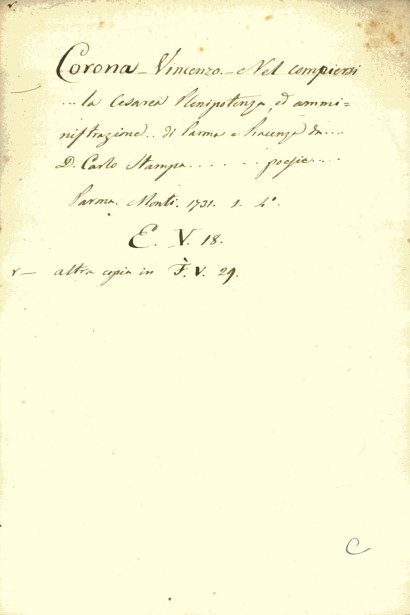 Corona - Vincenzo. - Nel compiersi
... la Cesarea Plenipotenza, ed ammi=
nistrazione... di Parma e Piacenza da....
D. Carlo Stampa...... poesie....
Parma. Monti. 1731. 1. 4°.
E. V. 18.
r — altra copia in F. V. 29.
C